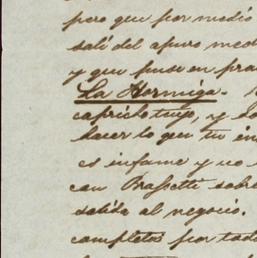 pero que por medio
salí del apuro med
y que puse en pra
La Hormiga.
capricho tuyo, y
hacer lo que tu in
es infame y no
con Brassetti sobre
salida al negocio.
completos por tod